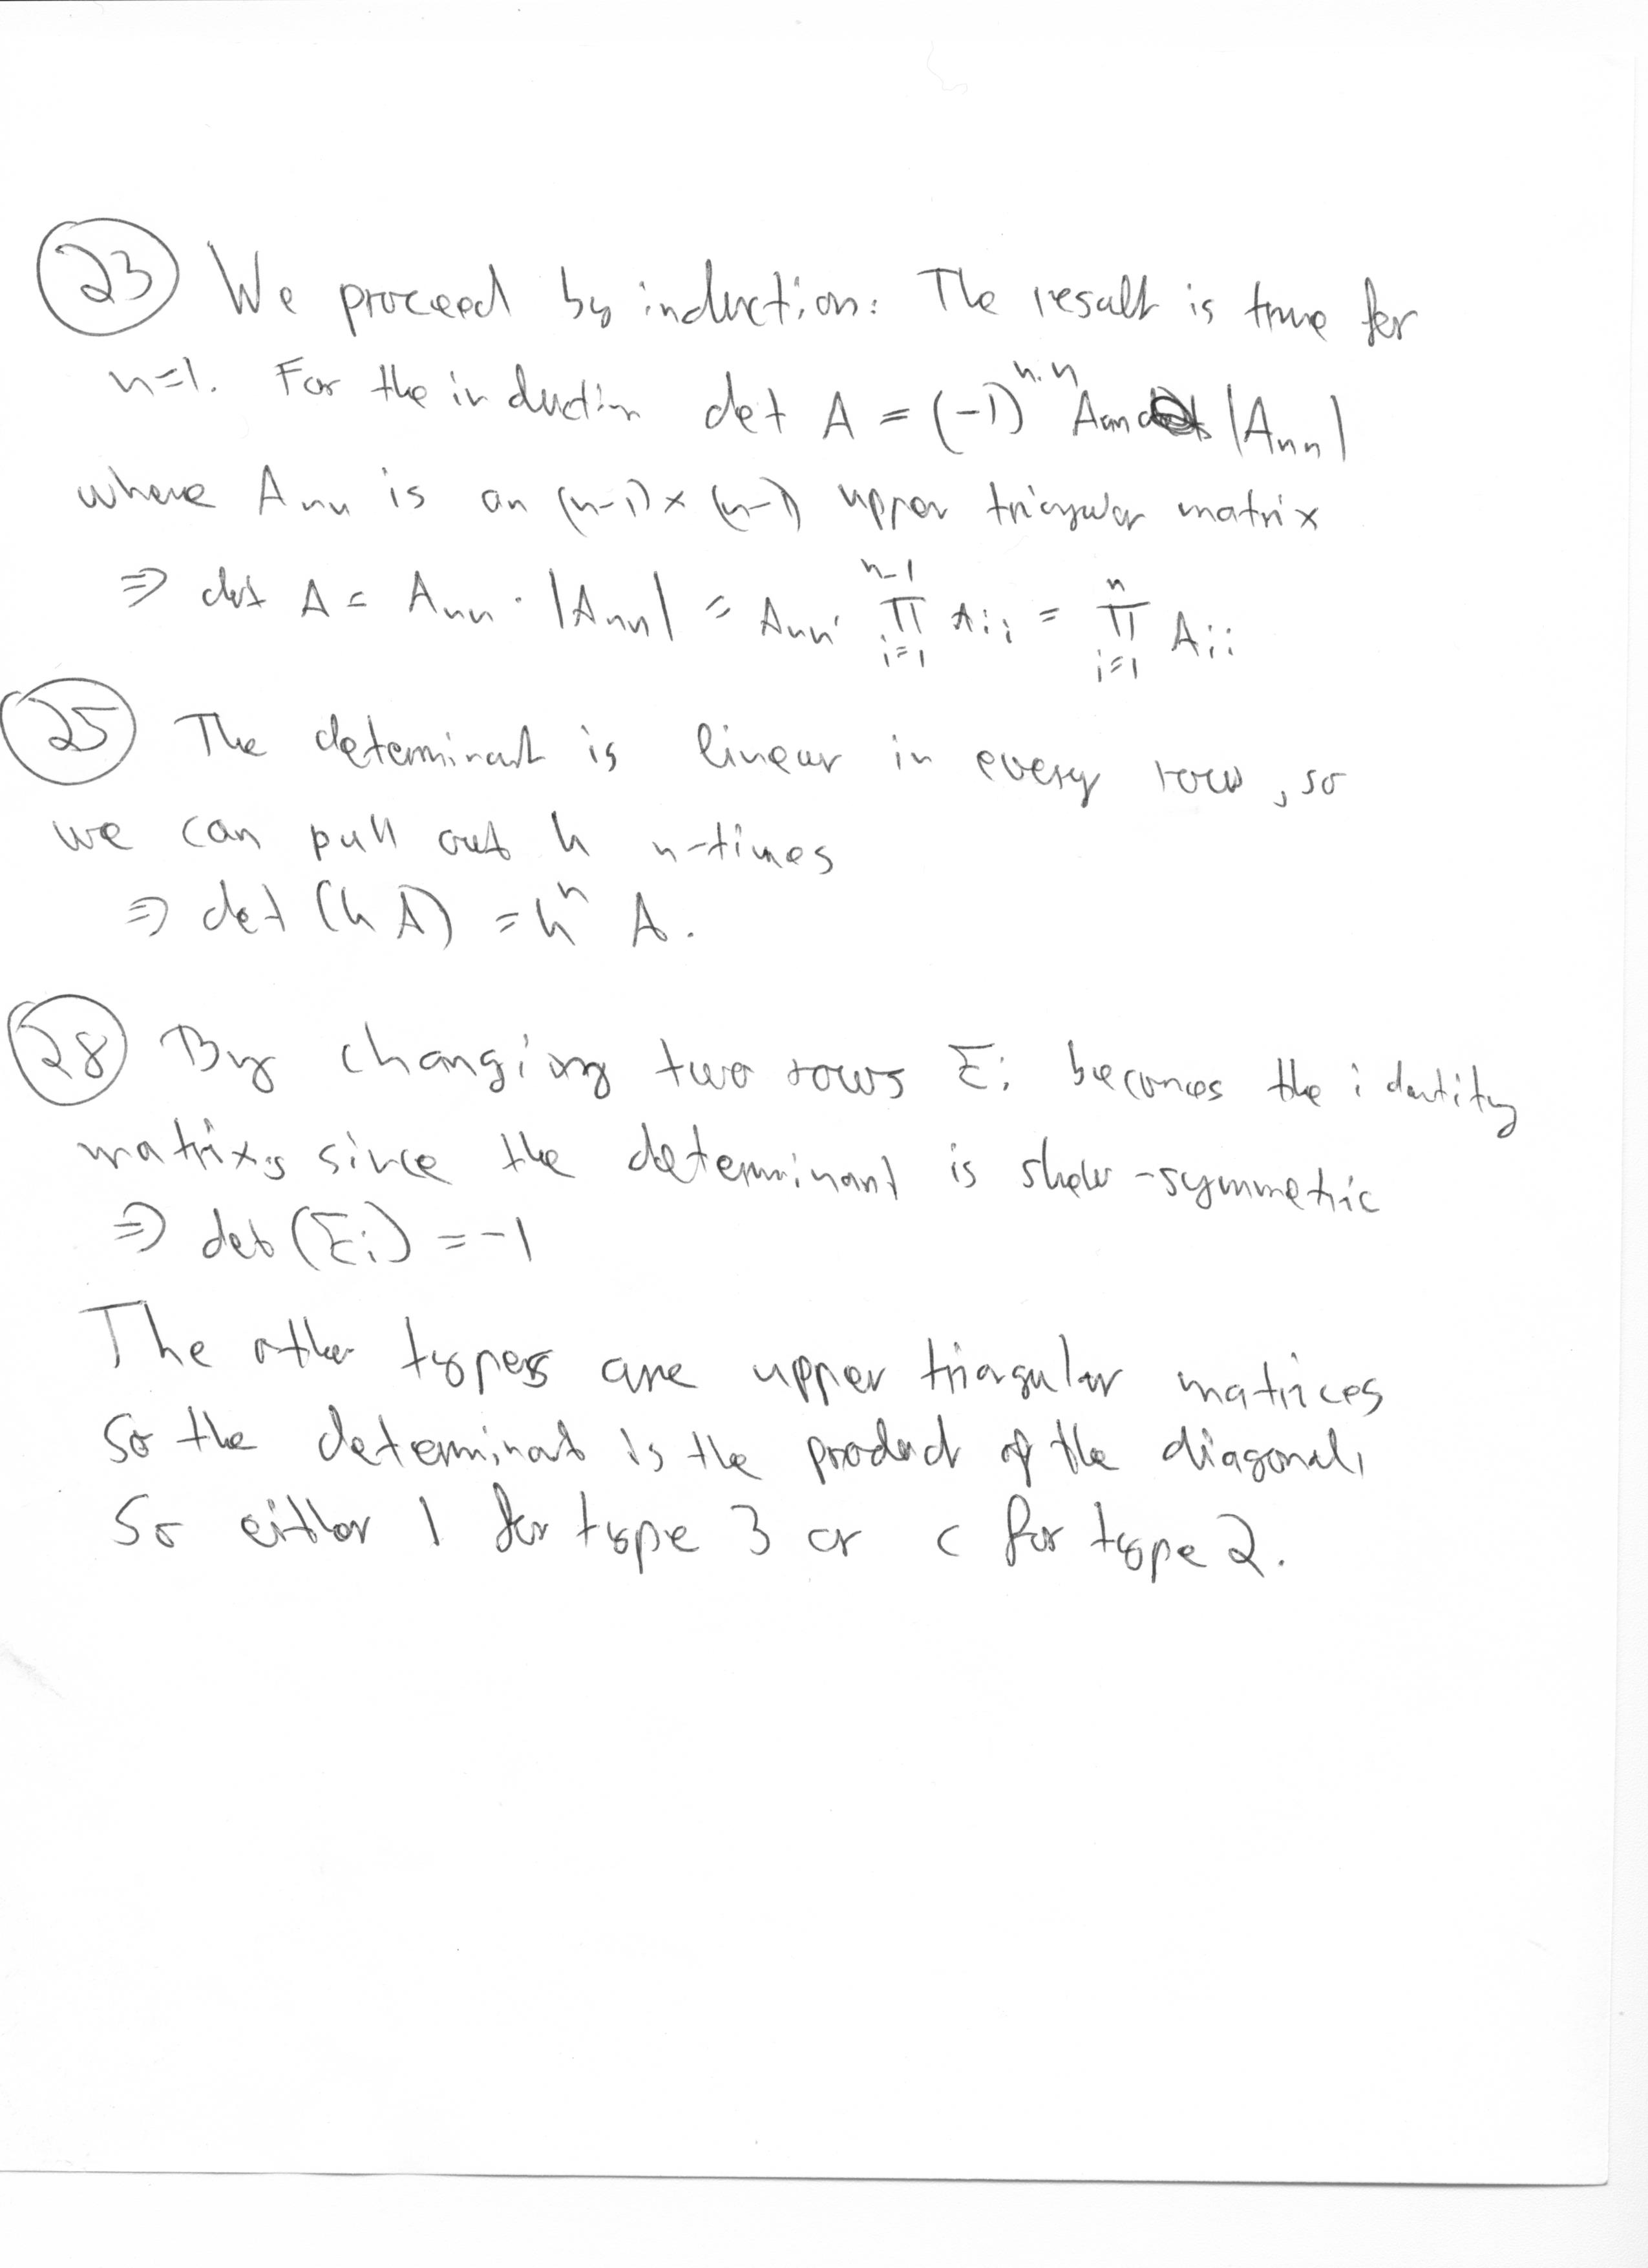 23 We proceed by induction: The result is true for
n=1. For the induction det A = (-1)^{n·n} Ann |Ann|
where Ann is an (n-1)×(n-1) upper triangular matrix
⇒ det A = Ann · |Ann| = Ann · ∏_{i=1}^{n-1} Aii = ∏_{i=1}^{n} Aii
25 The determinant is linear in every row, so
we can pull out k n-times
⇒ det (k A) = k^n A.
28 By changing two rows Ei becomes the identity
matrix, since the determinant is skew-symmetric
⇒ det (Ei) = -1
The other types are upper triangular matrices
so the determinant is the product of the diagonal,
So either 1 for type 3 or c for type 2.